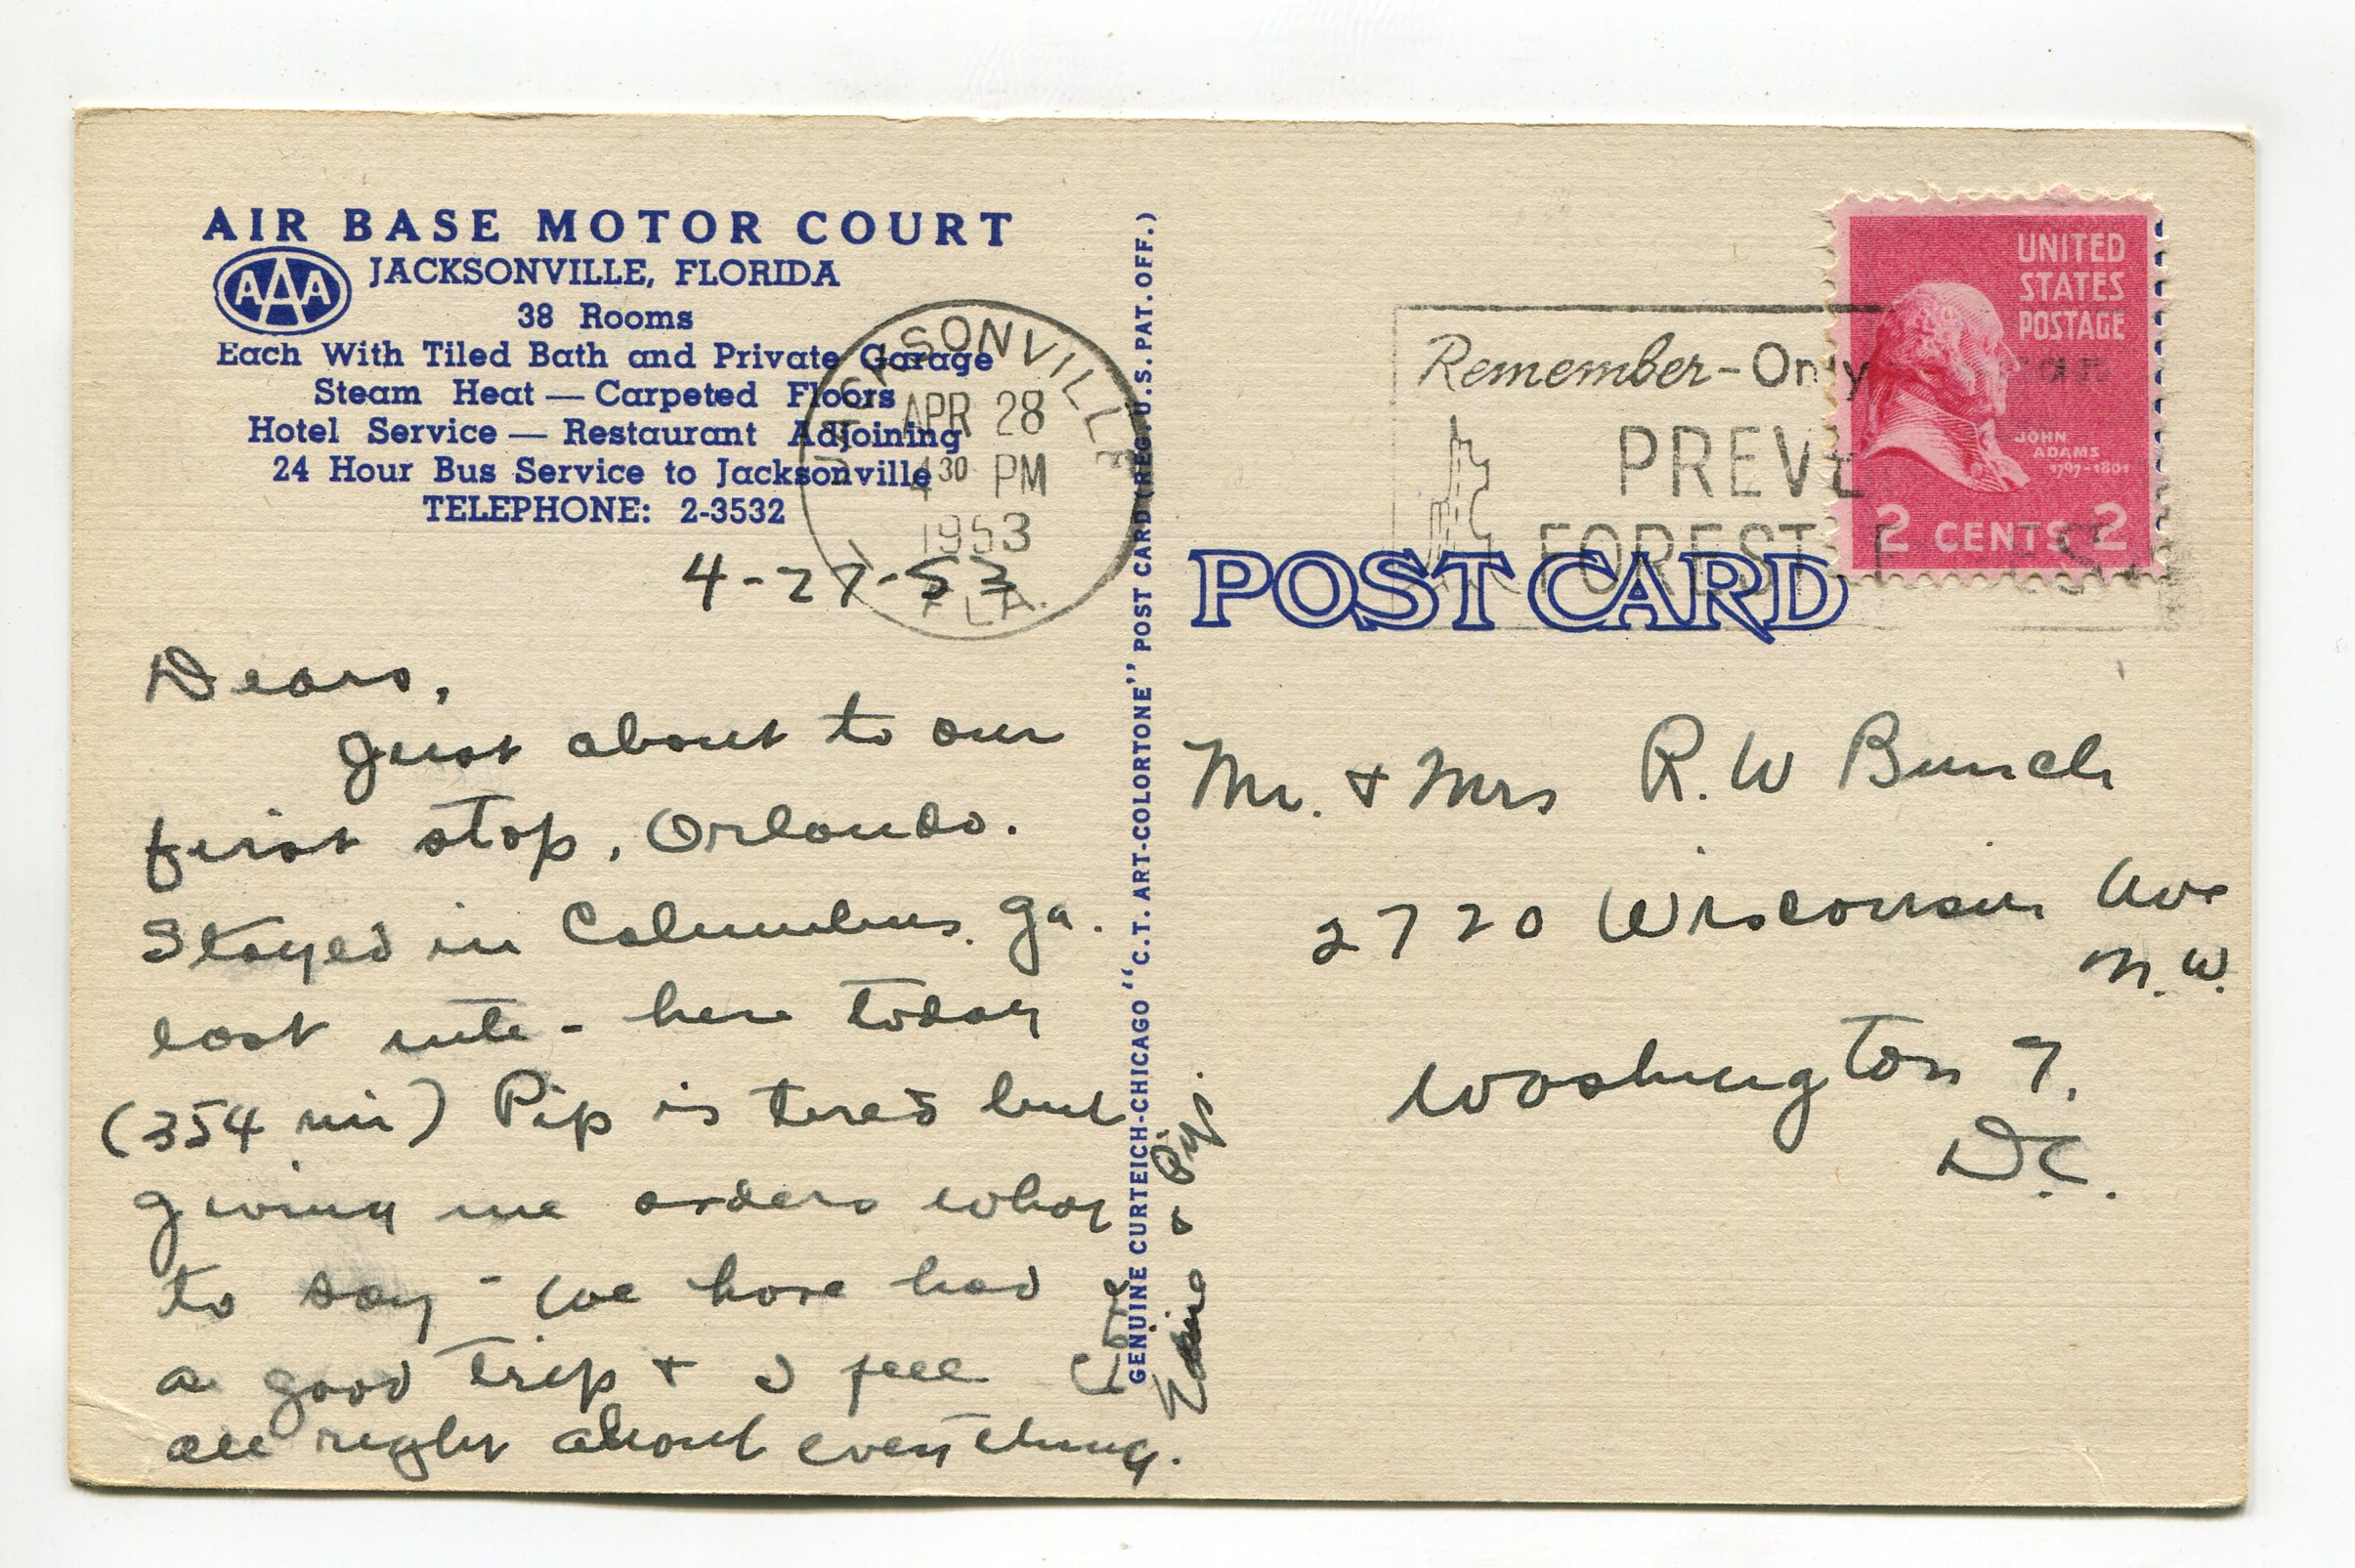 AIR BASE MOTOR COURT
AAA
JACKSONVILLE, FLORIDA
38 Rooms
Each With Tiled Bath and Private Garage
Steam Heat — Carpeted Floors
Hotel Service — Restaurant Adjoining
24 Hour Bus Service to Jacksonville
TELEPHONE: 2-3532
JACKSONVILLE
APR 28
4 30 PM
1953
FLA.
4-27-53
Dears,
Just about to our
first stop, Orlando.
Stayed in Columbus, Ga.
last nite - here today
(354 mi) Pip is tired but
giving me orders what
to say - We have had
a good trip & I feel
all right about everything.
Love
& Pip.
GENUINE CURTEICH-CHICAGO "C.T. ART-COLORTONE" POST CARD (REG. U.S. PAT. OFF.)
Remember-Only
PREVE
FOREST FI ES
UNITED
STATES
POSTAGE
JOHN
ADAMS
1797-1801
2 CENTS 2
POST CARD
Mr. & Mrs R. W Bunch
2720 Wisconsin Ave
N.W.
Washington 7.
D.C.